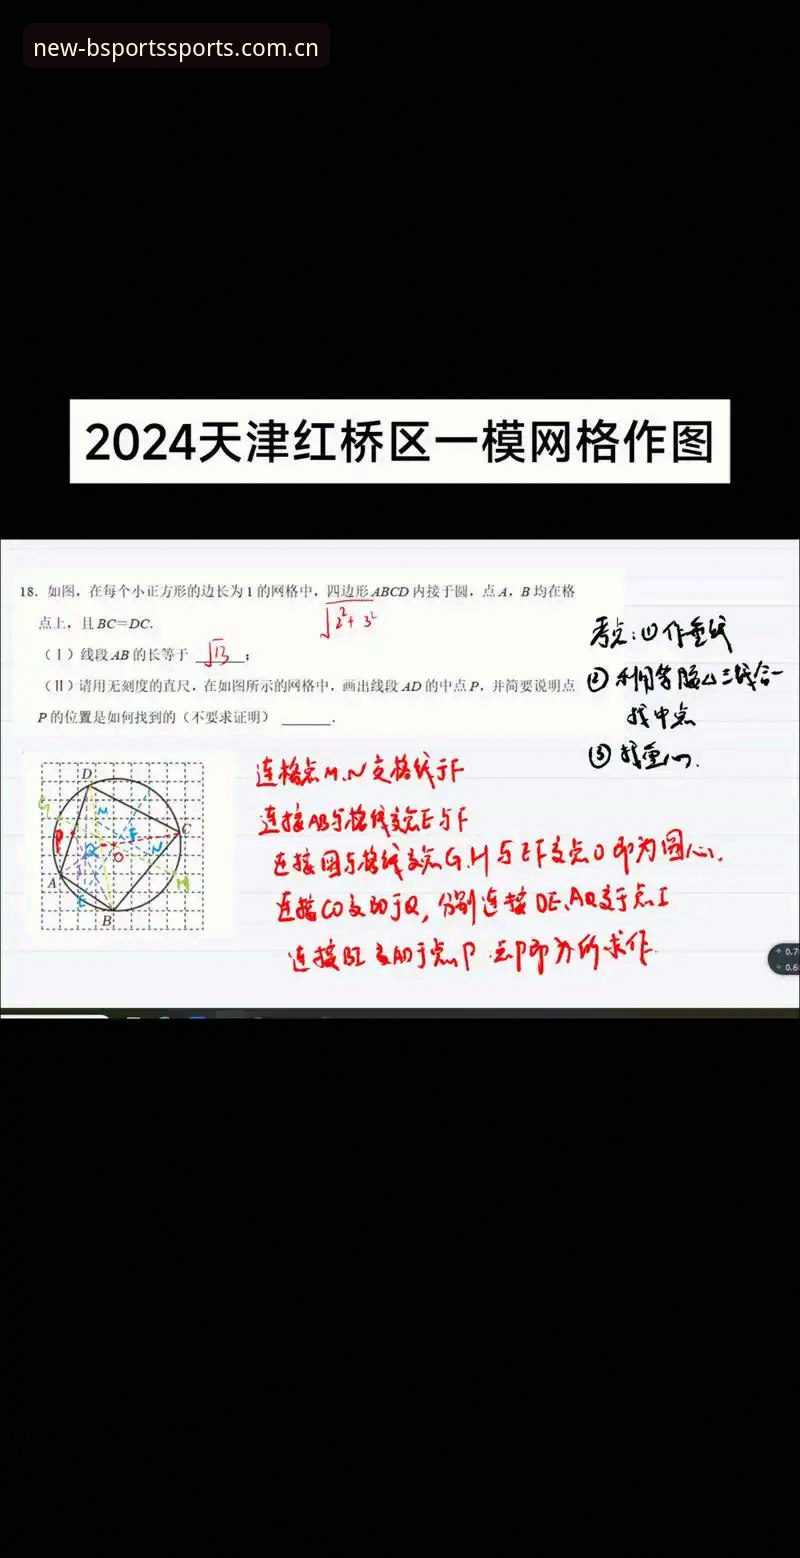 new-bsportssports.com.cn
2024天津红桥区一模网格作图
18. 如图，在每个小正方形的边长为 1 的网格中，四边形 ABCD 内接于圆，点 A，B 均在格
点上，且 BC=DC.
√2²+3²
（Ⅰ）线段 AB 的长等于 √13；
（Ⅱ）请用无刻度的直尺，在如图所示的网格中，画出线段 AD 的中点 P，并简要说明点
P 的位置是如何找到的（不要求证明） ______.
考点:①作垂线
②利用等腰△三线合一
找中点
③找重心.
D
G
M
P
F
C
Q
O
N
A
H
E
B
连格点M.N交格线于F
连接AB与格线交点E与F
连接圆与格线交点G.H与EF交点O即为圆心.
连接CO交BD于Q, 分别连接DE、AQ交于点I
连接BI交AD于点P 点P即为所求作.
0.7
0.6